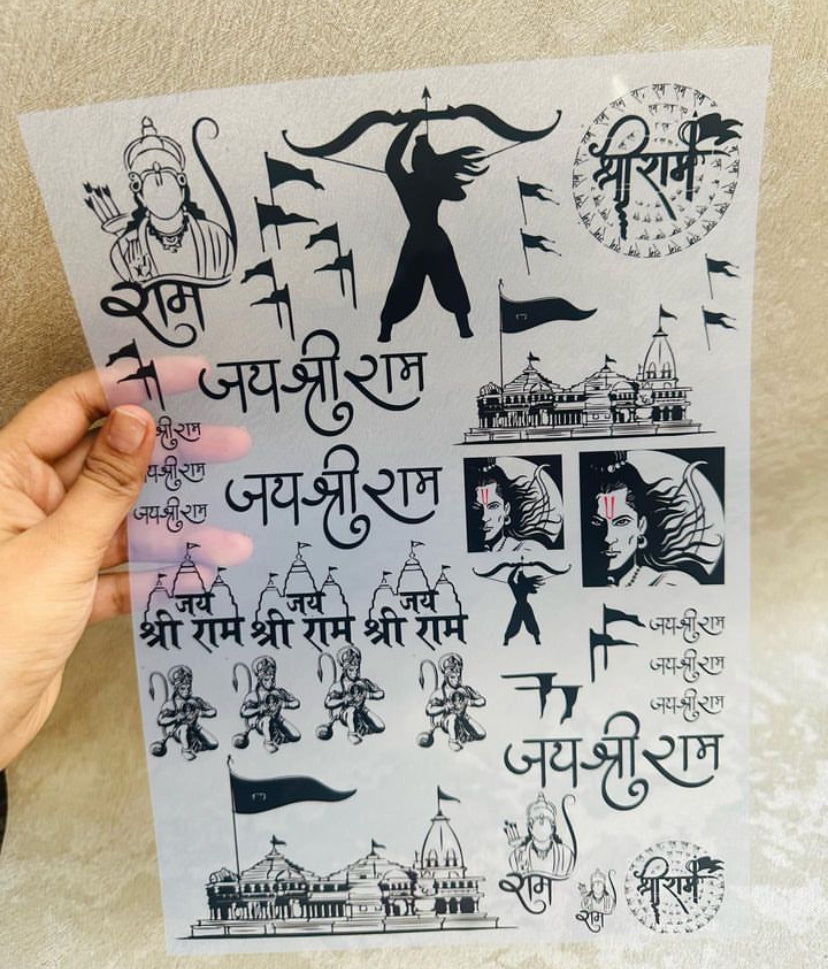 श्री राम
राम
जय श्री राम
श्री राम
जय श्री राम
जय श्री राम
जय श्री राम
जय श्री राम
जय
श्री राम
जय
श्री राम
जय
श्री राम
जय श्री राम
जय श्री राम
जय श्री राम
जय श्री राम
राम
राम
श्री राम